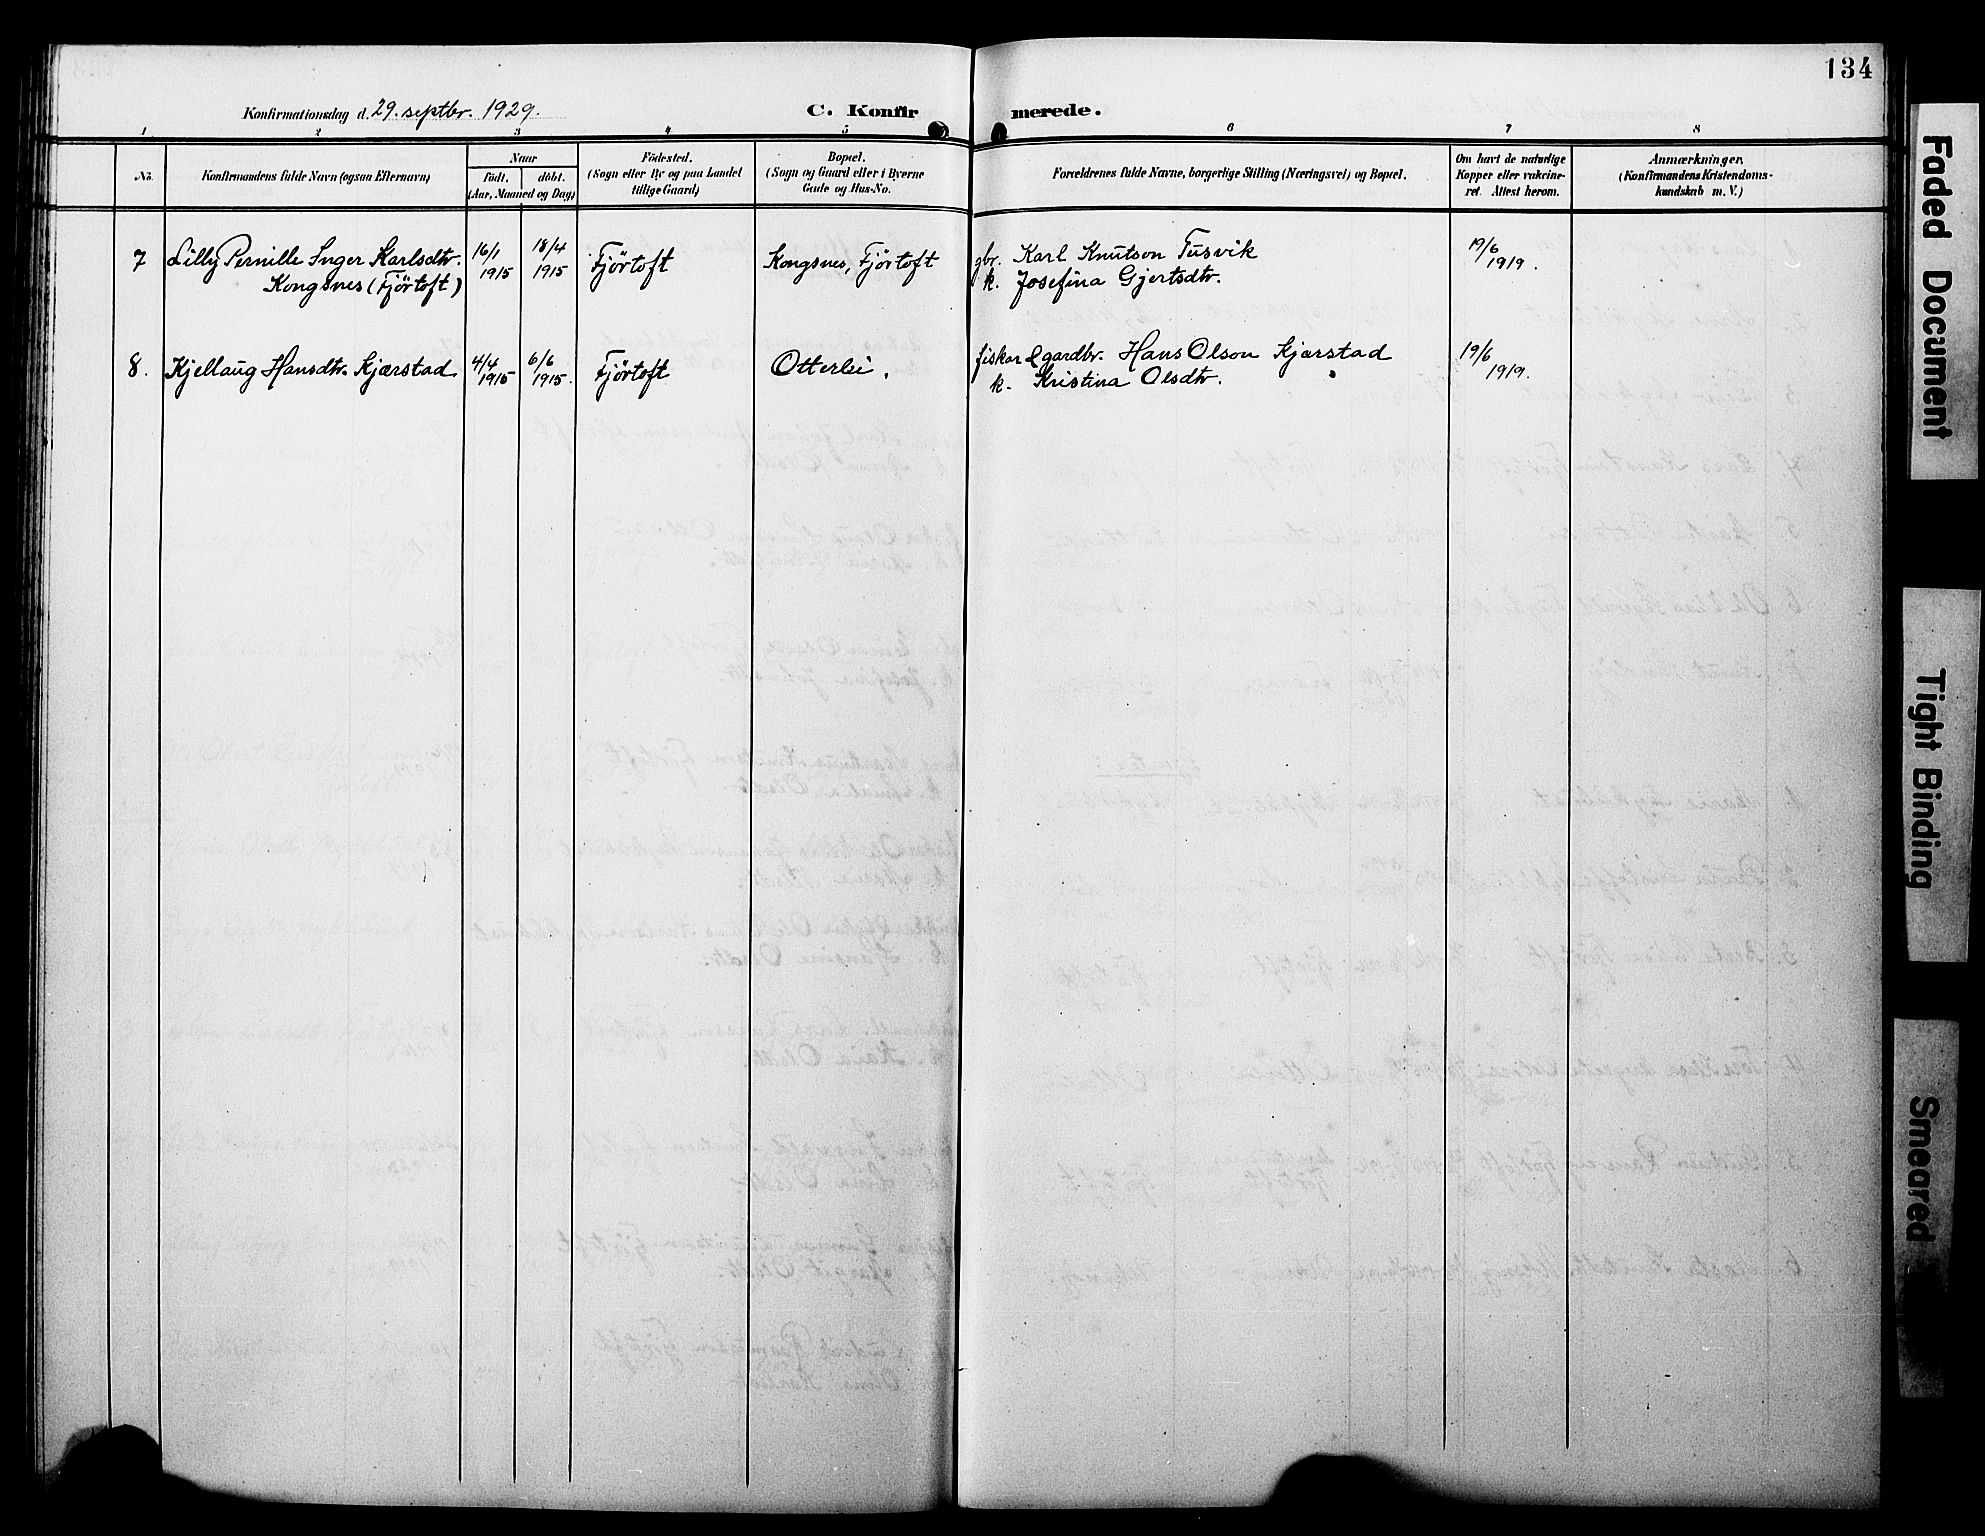 134
Konfirmationsdag d. 29. septbr. 1929.
C. Konfirmerede.
1 2 3 4 5 6 7 8
No.
Konfirmandens fulde Navn (ogsaa Efternavn)
Naar
født. døbt.
(Aar, Maaned og Dag)
Fødested.
(Sogn eller By og paa Landet
tillige Gaard)
Bopæl.
(Sogn og Gaard eller i Byerne
Gade og Hus-No.
Forældrenes fulde Navne, borgerlige Stilling (Næringsvei) og Bopæl.
Om havt de naturlige
Kopper eller vakcine-
ret. Attest herom.
Anmærkninger.
(Konfirmandens Kristendoms-
kundskab m. V.)
7 Lilly Pernille Inger Karlsdtr. 16/1 18/4 Fjörtoft Kongsnes, Fjörtoft gbr. Karl Knutson Tusvik 19/6
Kongsnes (Fjörtoft) 1915 1915 k. Josefina Gjertsdtr. 1919.
8. Kjellaug Hansdtr. Kjærstad 4/4 6/6 Fjörtoft Otterlei. fiskar & gardbr. Hans Olson Kjærstad 19/6
1915 1915. k. Kristina Olsdtr. 1919.
Faded Document
Tight Binding
Smeared